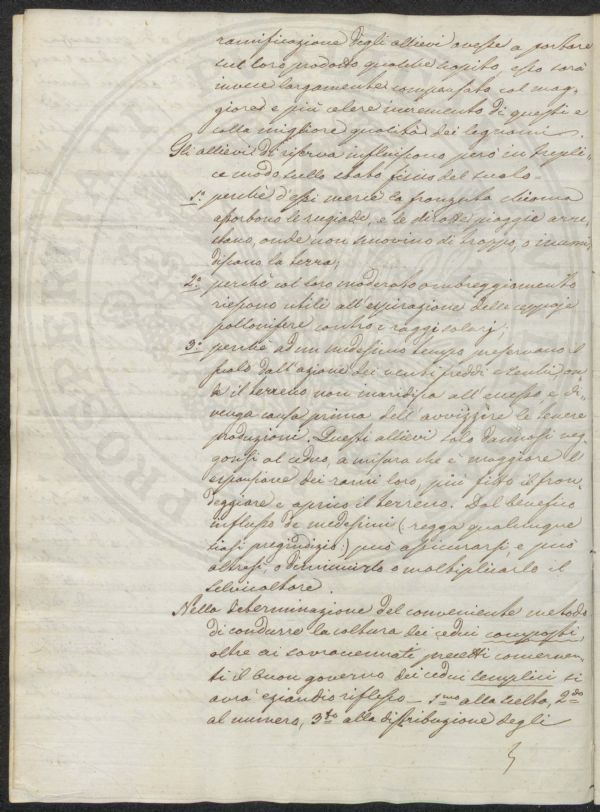 ramificazione degli allievi avesse a portare
sul loro prodotto qualche scapito, esso sarà
invece largamente compensato col mag-
giore e più celere incremento di questi e
colla migliore qualità dei legnami.
Gli allievi di riserva influiscono però in tripli-
ce modo sullo stato fisico del suolo.
1.° perché d'essi mercé la fronzuta chioma
assorbono le rugiade, e le dirotte pioggie arre-
stano, onde non smovino di troppo, o inumi-
discano la terra;
2.° perché col loro moderato ombreggiamento
riescono utili all'espirazione delle ceppaje
pollonifere contro i raggi solari;
3.° perché ad un medesimo tempo preservano il
suolo dall'azione dei venti freddi e [...] on
de il terreno non inaridisca all'eccesso e di-
venga causa prima dell'avvizzire le tenere
produzioni. Questi allievi solo dannosi veg
gonsi al ceduo, a misura che è maggiore l'
espansione dei rami loro, più fitto il fron-
deggiare e aprico il terreno. Dal benefico
influsso de' medesimi (regga qualunque
siasi pregiudizio) può assicurarsi, e può
altresì, o diminuirlo o moltiplicarlo il
selvicoltore.
Nella determinazione del conveniente metodo
di condurre la coltura dei cedui composti,
oltre ai sovraccennati precetti concernen-
ti il buon governo dei cedui semplici si
avrà eziandio riflesso – 1.mo alla scelta, 2.do
al numero, 3.zo alla distribuzione degli
PROSPERITATI PUBLICAE